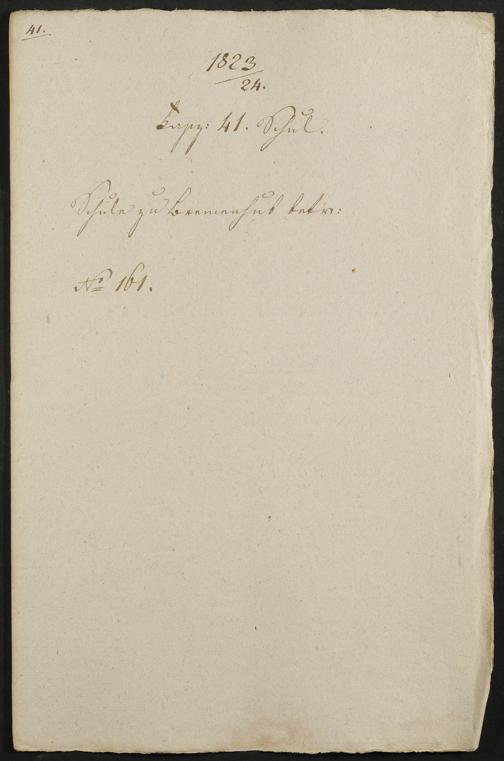 41.
1823
24.
Kapp: 41. Schul.
Schule zu Bremenhub betr:
No 161.